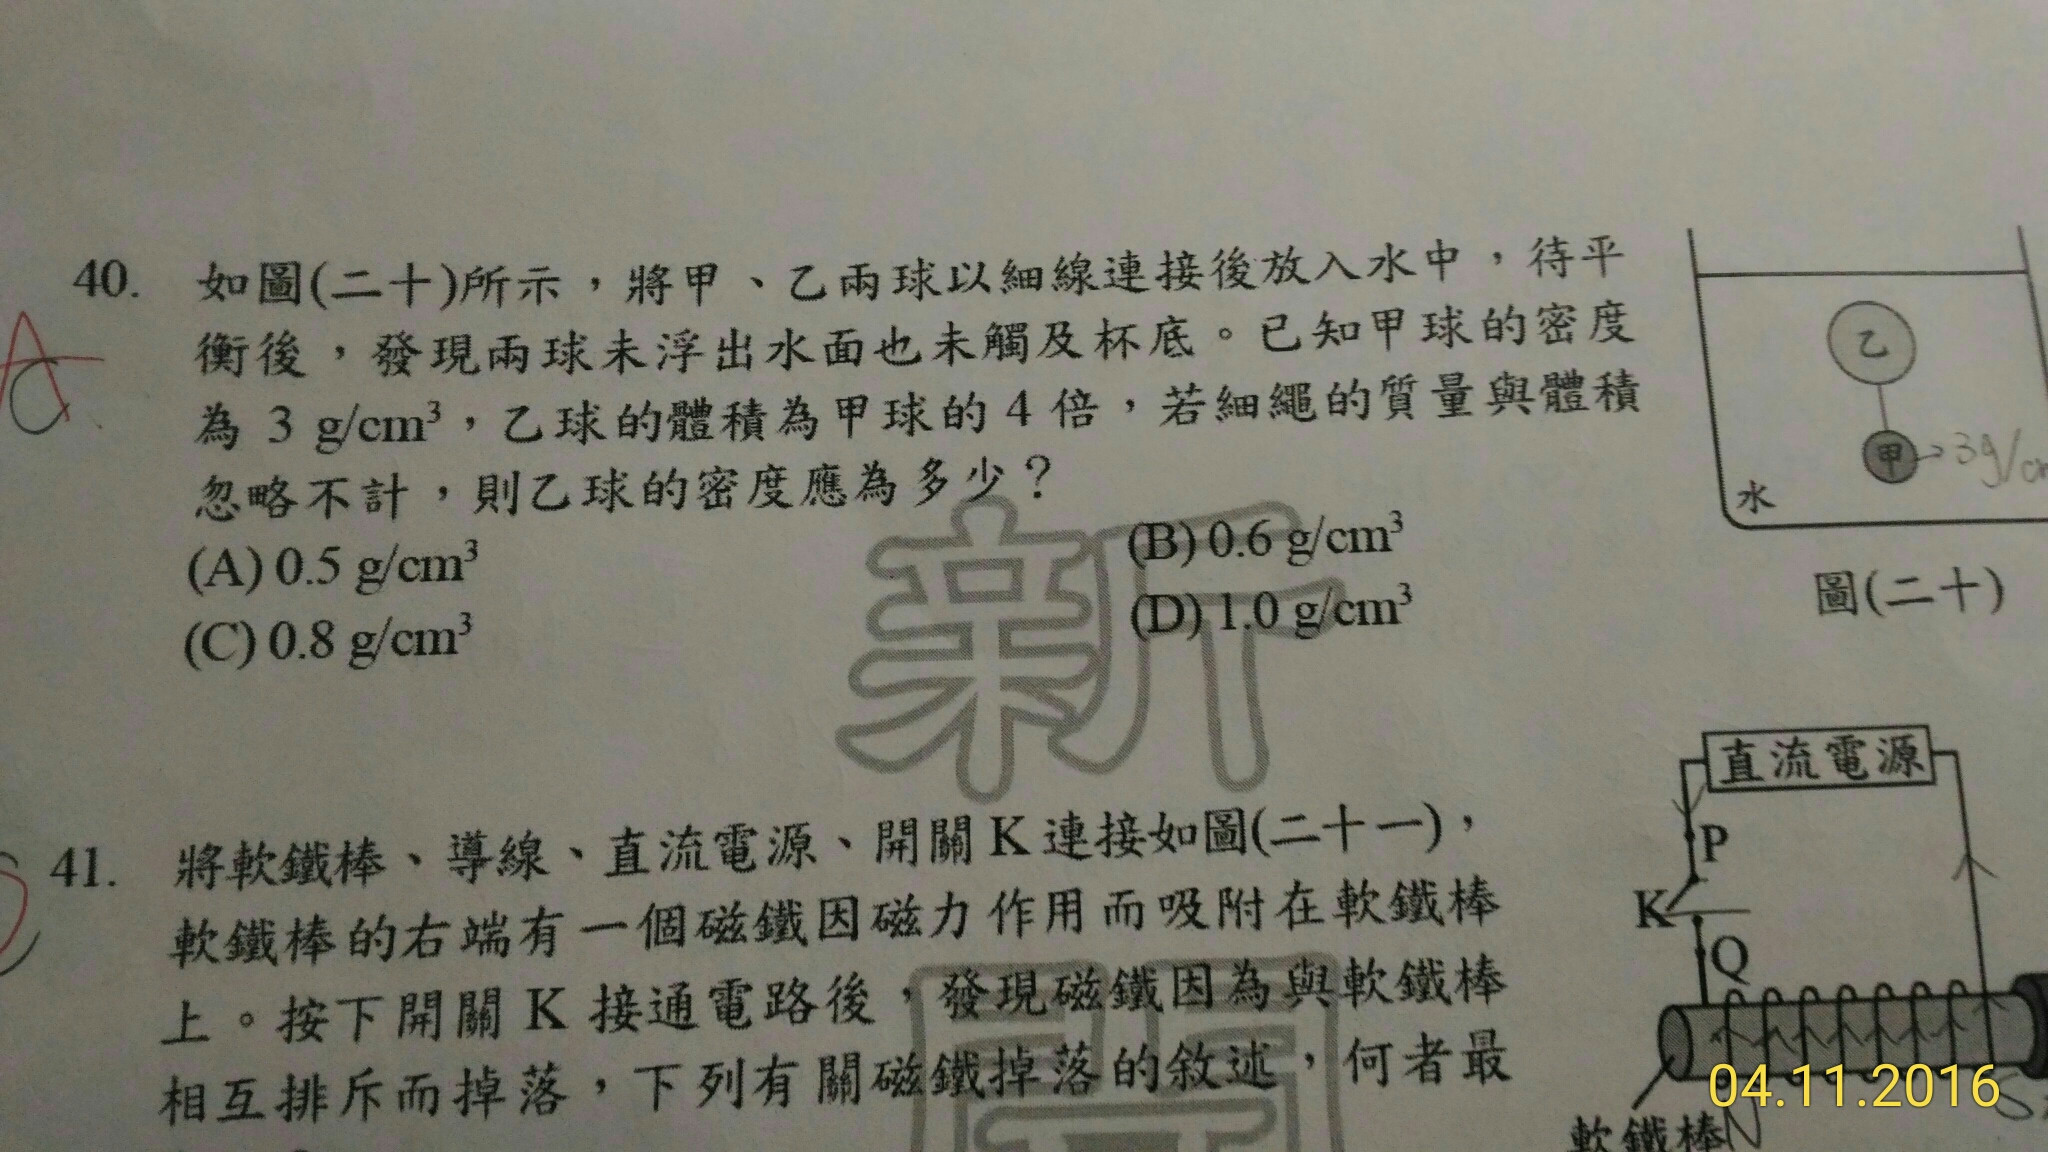 40. 如圖(二十)所示，將甲、乙兩球以細線連接後放入水中，待平
衡後，發現兩球未浮出水面也未觸及杯底。已知甲球的密度
為 3 g/cm³，乙球的體積為甲球的 4 倍，若細繩的質量與體積
忽略不計，則乙球的密度應為多少？
(A) 0.5 g/cm³ (B) 0.6 g/cm³
(C) 0.8 g/cm³ (D) 1.0 g/cm³
A
乙
甲
3g/cm
水
圖(二十)
新
41. 將軟鐵棒、導線、直流電源、開關 K 連接如圖(二十一)，
軟鐵棒的右端有一個磁鐵因磁力作用而吸附在軟鐵棒
上。按下開關 K 接通電路後，發現磁鐵因為與軟鐵棒
相互排斥而掉落，下列有關磁鐵掉落的敘述，何者最
直流電源
P
K
Q
軟鐵棒
N
S
04.11.2016